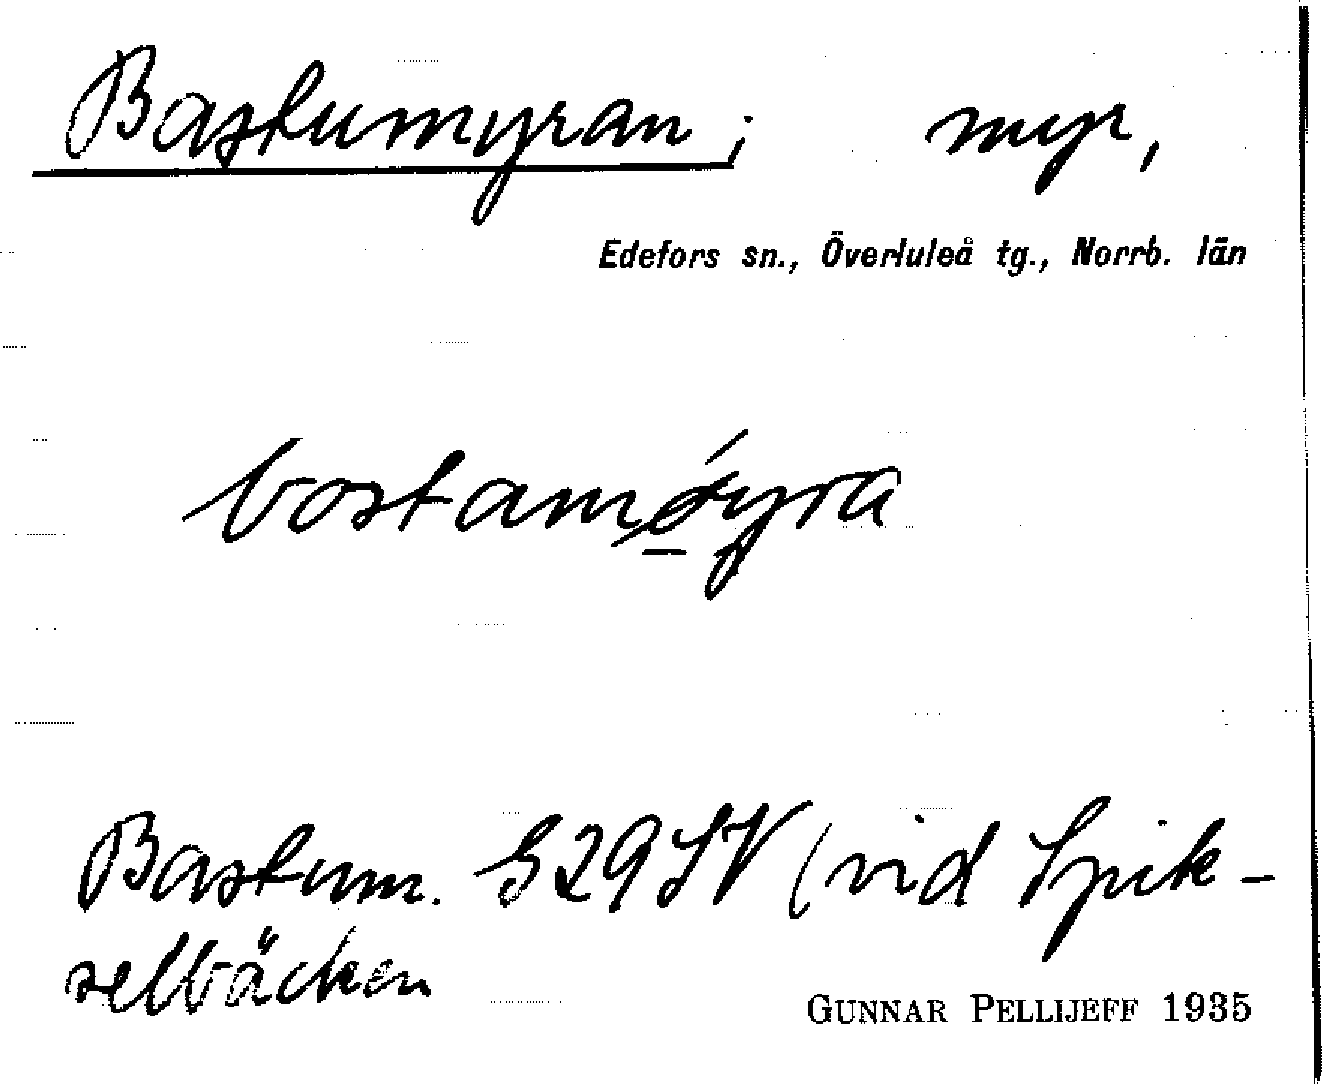 Bastumyran; myr,
Edefors sn., Överluleå tg., Norrb. län
bastamøyra
Bastum. G29SV (vid Spik-
selbäcken
GUNNAR PELLIJEFF 1935